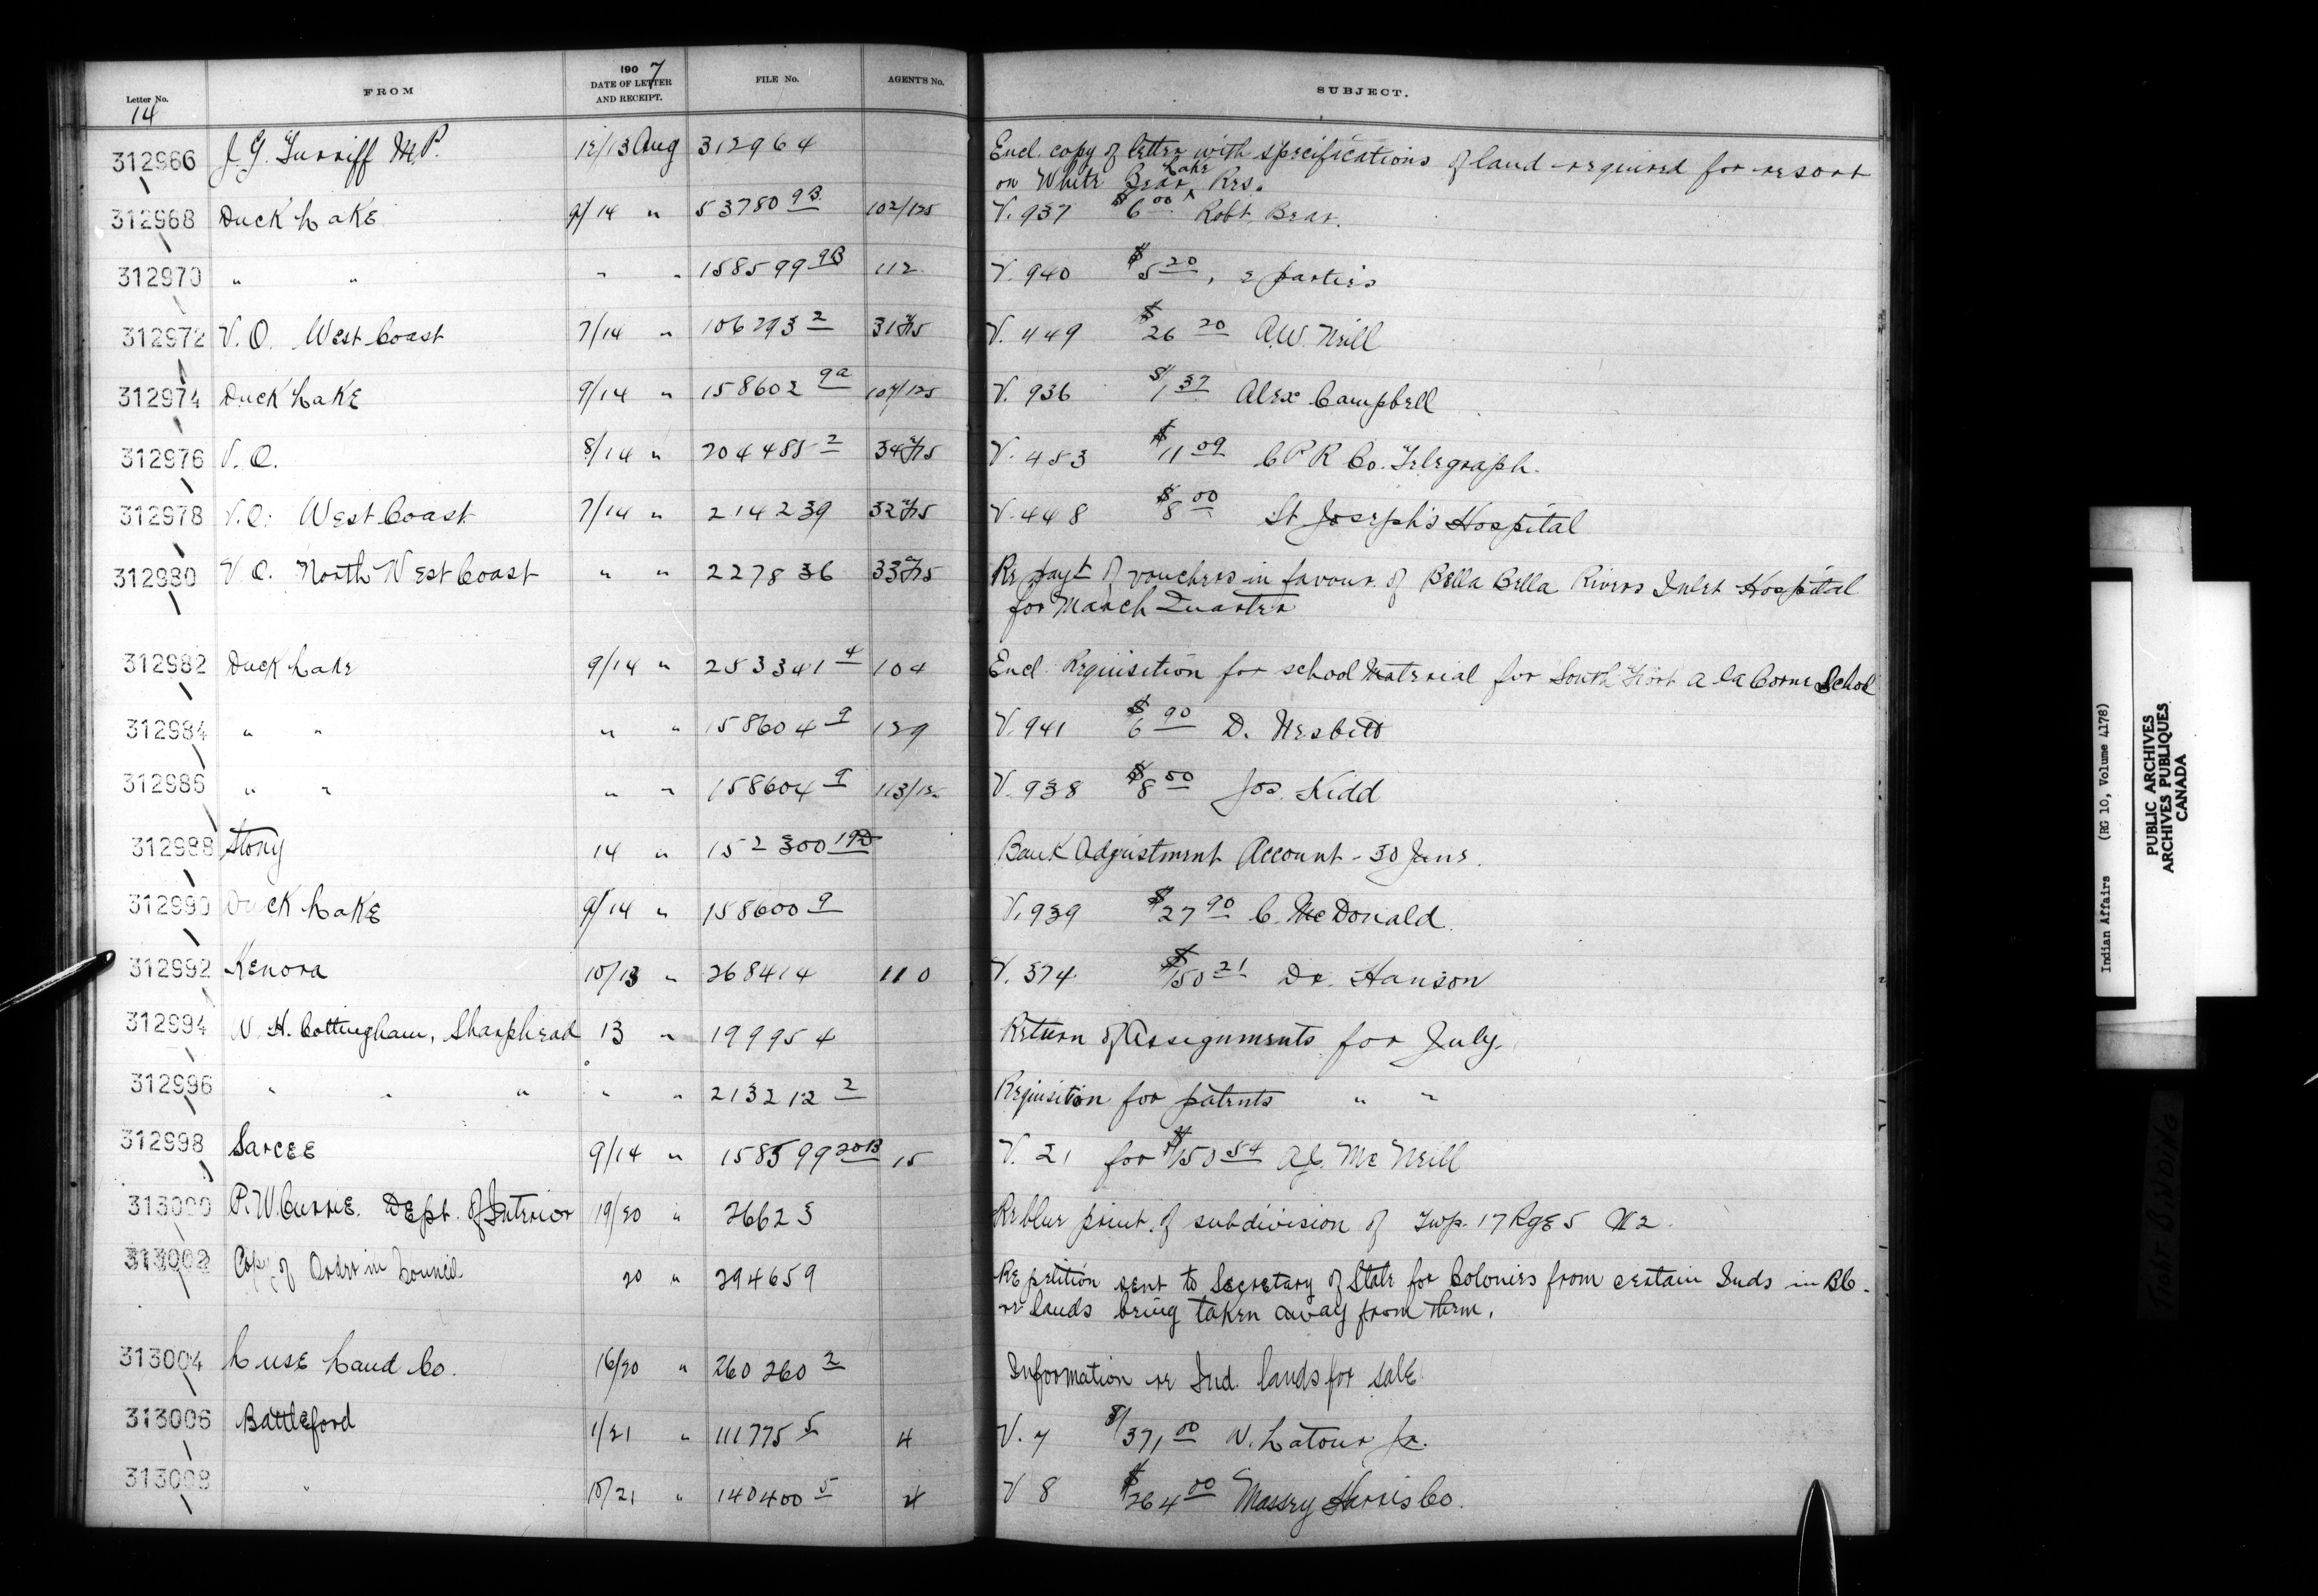 Letter No. FROM 1907 DATE OF LETTER AND RECEIPT. FILE No. AGENT'S No. SUBJECT.
14
312966 J. G. Turriff M.P. 12/13 Aug 312964 Encl. copy of letter with specifications of land required for resort
on White Bear Lake Res.
312968 Duck Lake 9/14 " 53780 9B 102/125 V. 937 $6 00 Robt. Bear.
312970 " " " " 158599 9B 112 V. 940 $5 20, 2 parties
312972 V.O. West Coast 7/14 " 106293 2 31 V. 449 $26 20 A.W. Neill
312974 Duck Lake 9/14 " 158602 9a 107/125 V. 936 $1 37 Alex Campbell
312976 V.O. 8/14 " 204488 2 34 V. 453 $11 09 C P R Co. Telegraph.
312978 V.O. West Coast 7/14 " 214239 32 V. 448 $8 00 St Joseph's Hospital
312980 V.O. North West Coast " " 227836 33 Re payt of vouchers in favour of Bella Bella Rivers Inlet Hospital
for March Quarter
312982 Duck Lake 9/14 " 253341 4 104 Encl. Requisition for school Material for South Fort a la Corne School
312984 " " " " 158604 9 129 V. 941 $6 90 D. Nesbitt
312986 " " " " 158604 9 V. 938 $8 50 Jos. Kidd
312988 Stony 14 " 152300 Bank Adjustment Account - 30 June.
312990 Duck Lake 9/14 " 158600 9 V. 939 $27 90 C. McDonald.
312992 Kenora 10/13 " 268414 110 V. 374 $150 21 Dr. Hanson
312994 N. H. Cottingham, Sharphead 13 " 199954 Return of Assignments for July.
312996 " " " " " 213212 2 Requisition for patents " "
312998 Sarcee 9/14 " 158599 20B 15 V. 21 for $150 54 A.J. McNeill
313000 P. W. Currie. Dept. of Interior 19/20 " 26623 Re blue print of subdivision of Twp. 17 Rge 5 W 2.
313002 Copy of Order in Council 20 " 294659 Re petition sent to Secretary of State for Colonies from certain Inds in BC.
re lands being taken away from them.
313004 Luse Land Co. 16/20 " 260260 2 Information re Ind. lands for sale
313006 Battleford 1/21 " 111775 5 4 V. 7 $371 00 N. Latour Jr.
313008 " 10/21 " 140400 5 V 8 $264 00 Massey Harris Co.
Indian Affairs (RG 10, Volume 4178)
PUBLIC ARCHIVES
ARCHIVES PUBLIQUES
CANADA
TIGHT BINDING